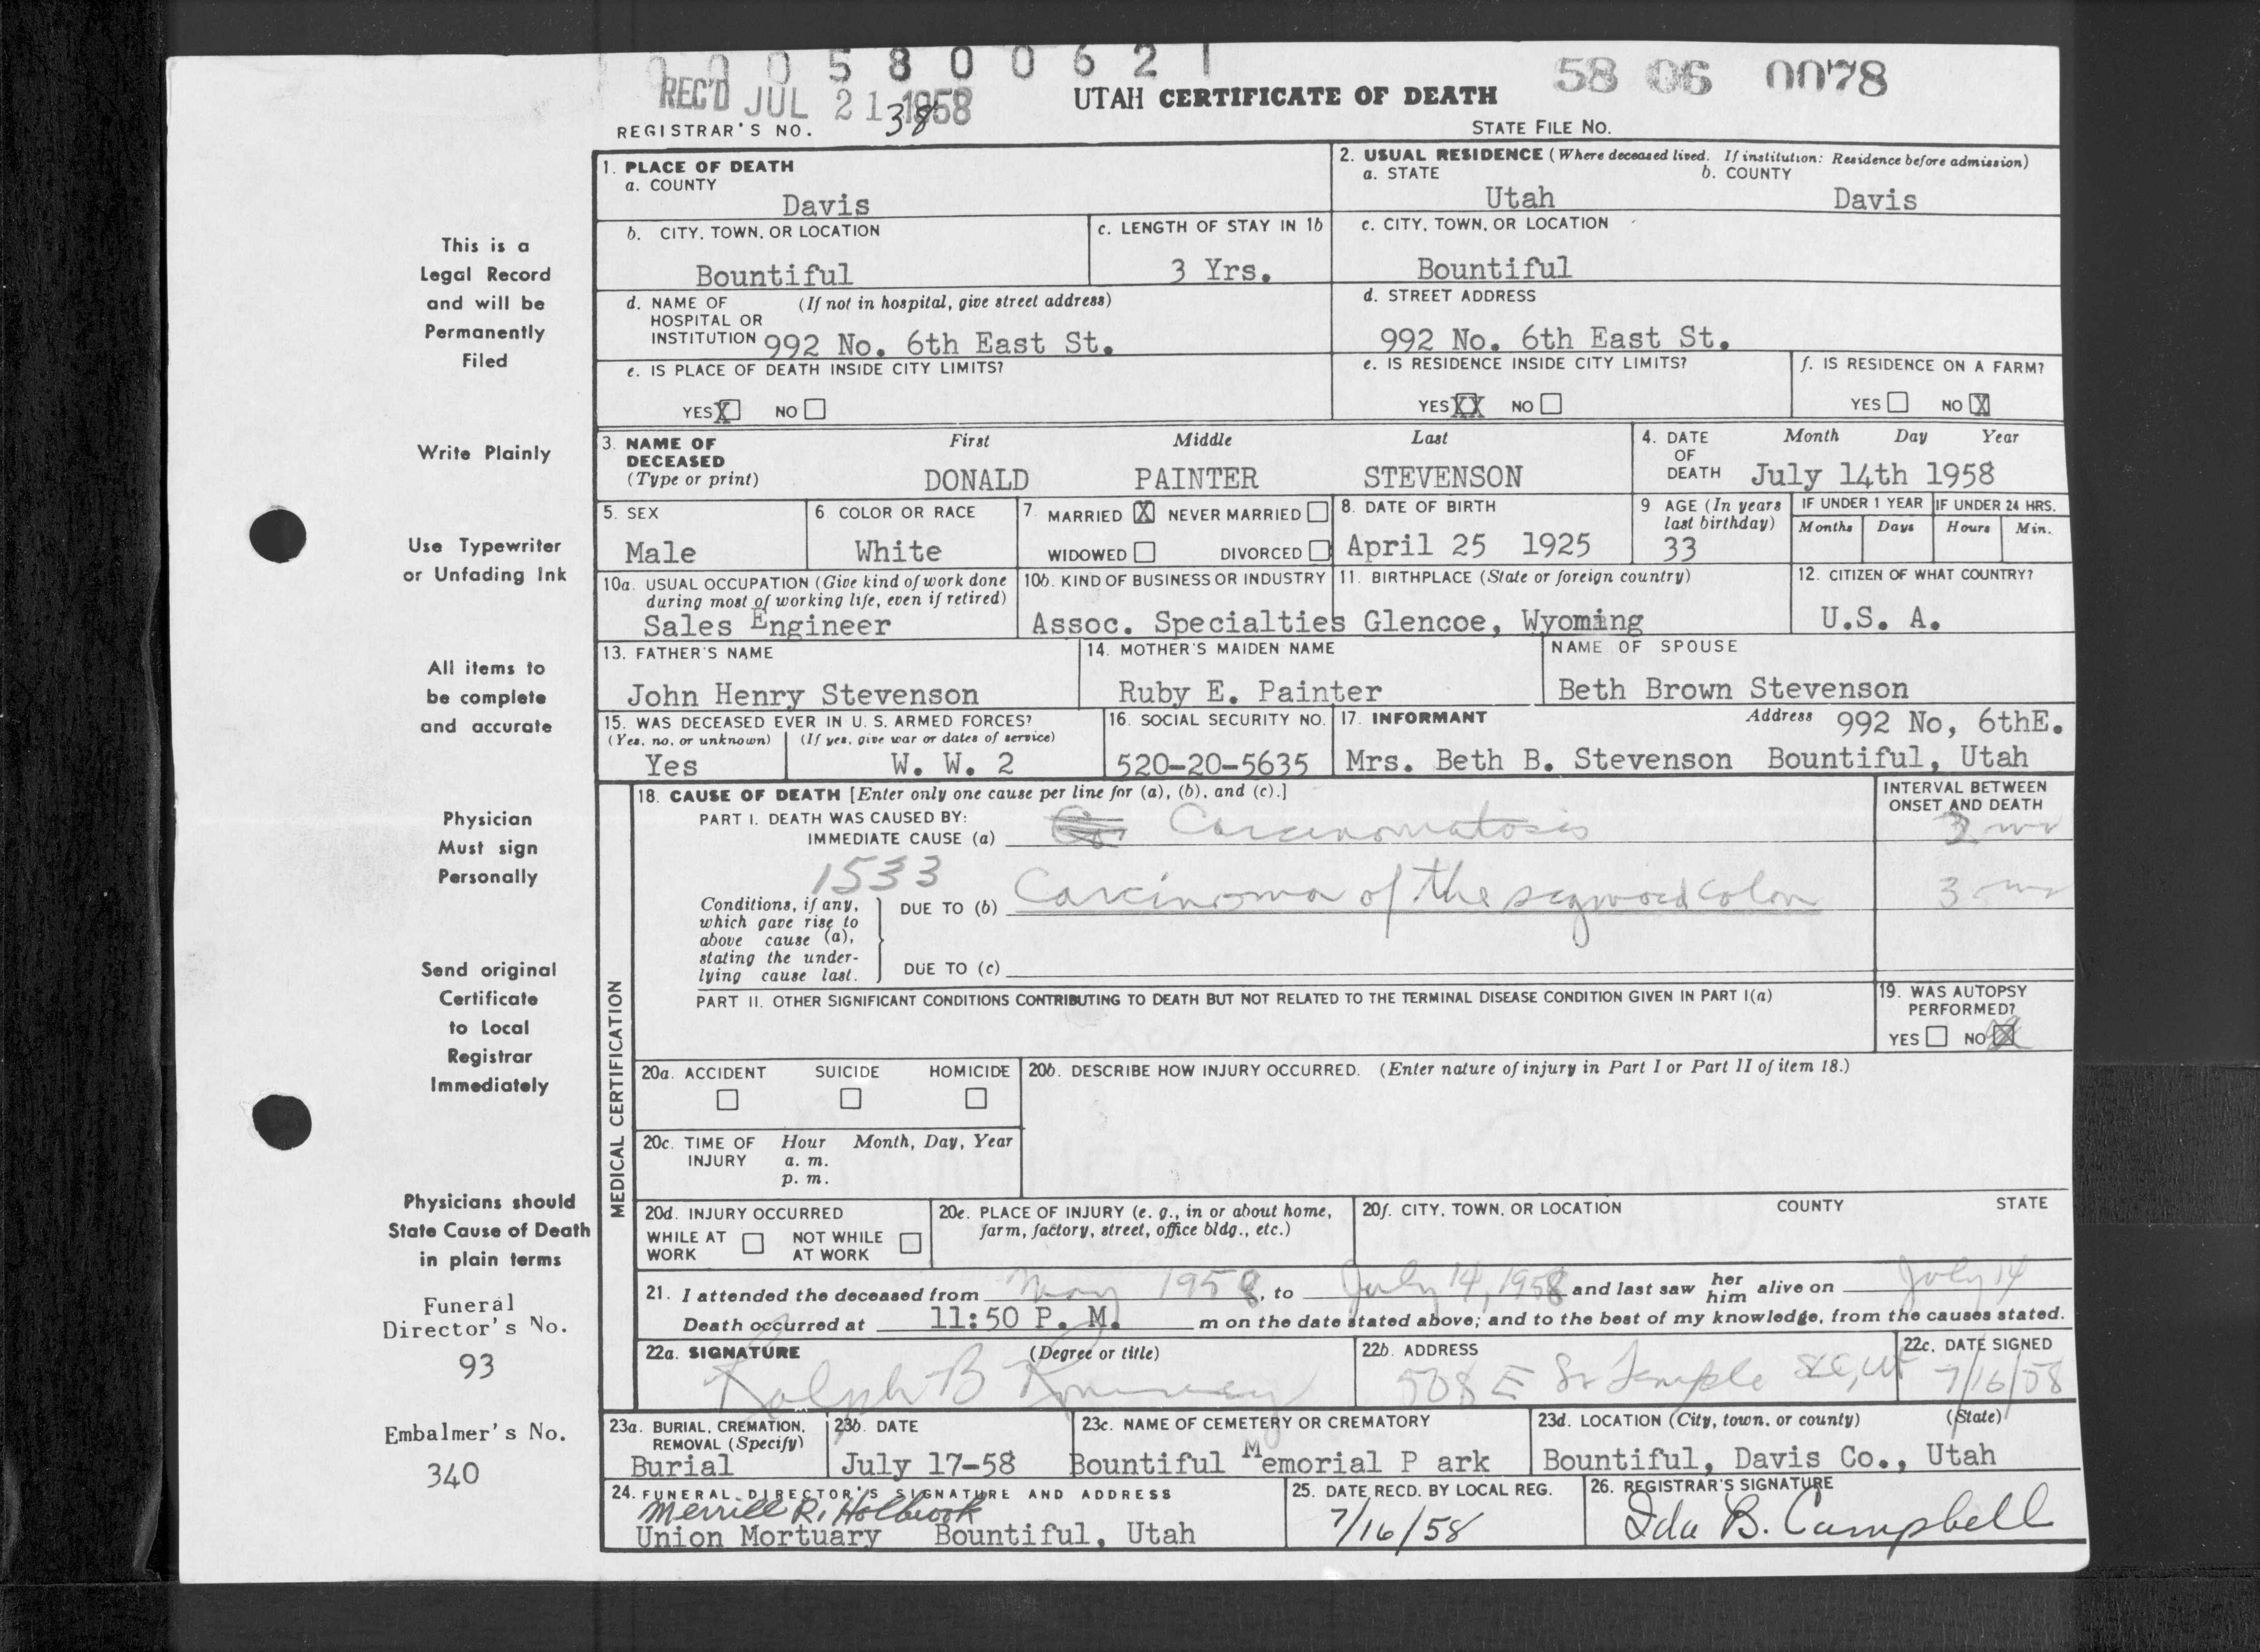 0 0 0 5 8 0 0 6 2 1
REC'D JUL 21 1958
38
UTAH CERTIFICATE OF DEATH
58 06 0078
REGISTRAR'S NO.
STATE FILE NO.
This is a
Legal Record
and will be
Permanently
Filed
Write Plainly
Use Typewriter
or Unfading Ink
All items to
be complete
and accurate
Physician
Must sign
Personally
Send original
Certificate
to Local
Registrar
Immediately
Physicians should
State Cause of Death
in plain terms
Funeral
Director's No.
93
Embalmer's No.
340
1. PLACE OF DEATH
a. COUNTY
Davis
2. USUAL RESIDENCE (Where deceased lived. If institution: Residence before admission)
a. STATE b. COUNTY
Utah Davis
b. CITY, TOWN, OR LOCATION
Bountiful
c. LENGTH OF STAY IN 1b
3 Yrs.
c. CITY, TOWN, OR LOCATION
Bountiful
d. NAME OF (If not in hospital, give street address)
HOSPITAL OR
INSTITUTION 992 No. 6th East St.
d. STREET ADDRESS
992 No. 6th East St.
e. IS PLACE OF DEATH INSIDE CITY LIMITS?
YES X NO
e. IS RESIDENCE INSIDE CITY LIMITS?
YES XX NO
f. IS RESIDENCE ON A FARM?
YES NO X
3. NAME OF
DECEASED
(Type or print)
First Middle Last
DONALD PAINTER STEVENSON
4. DATE
OF
DEATH
Month Day Year
July 14th 1958
5. SEX
Male
6. COLOR OR RACE
White
7. MARRIED X NEVER MARRIED
WIDOWED DIVORCED
8. DATE OF BIRTH
April 25 1925
9 AGE (In years
last birthday)
33
IF UNDER 1 YEAR IF UNDER 24 HRS.
Months Days Hours Min.
10a. USUAL OCCUPATION (Give kind of work done
during most of working life, even if retired)
Sales Engineer
10b. KIND OF BUSINESS OR INDUSTRY
Assoc. Specialties
11. BIRTHPLACE (State or foreign country)
Glencoe, Wyoming
12. CITIZEN OF WHAT COUNTRY?
U.S. A.
13. FATHER'S NAME
John Henry Stevenson
14. MOTHER'S MAIDEN NAME
Ruby E. Painter
NAME OF SPOUSE
Beth Brown Stevenson
15. WAS DECEASED EVER IN U. S. ARMED FORCES?
(Yes, no, or unknown) (If yes, give war or dates of service)
Yes W. W. 2
16. SOCIAL SECURITY NO.
520-20-5635
17. INFORMANT Address 992 No, 6thE.
Mrs. Beth B. Stevenson Bountiful, Utah
MEDICAL CERTIFICATION
18. CAUSE OF DEATH [Enter only one cause per line for (a), (b), and (c).]
INTERVAL BETWEEN
ONSET AND DEATH
PART I. DEATH WAS CAUSED BY:
IMMEDIATE CAUSE (a) Carcinomatosis
1533
Conditions, if any,
which gave rise to
above cause (a),
stating the under-
lying cause last.
DUE TO (b) Carcinoma of the sigmoid colon 3
DUE TO (c)
PART II. OTHER SIGNIFICANT CONDITIONS CONTRIBUTING TO DEATH BUT NOT RELATED TO THE TERMINAL DISEASE CONDITION GIVEN IN PART I(a)
19. WAS AUTOPSY
PERFORMED?
YES NO X
20a. ACCIDENT SUICIDE HOMICIDE
20b. DESCRIBE HOW INJURY OCCURRED. (Enter nature of injury in Part I or Part II of item 18.)
20c. TIME OF Hour Month, Day, Year
INJURY a. m.
p. m.
20d. INJURY OCCURRED
WHILE AT NOT WHILE
WORK AT WORK
20e. PLACE OF INJURY (e. g., in or about home,
farm, factory, street, office bldg., etc.)
20f. CITY, TOWN, OR LOCATION COUNTY STATE
21. I attended the deceased from May 1958, to July 14, 1958 and last saw her him alive on July 14
Death occurred at 11:50 P. M. m on the date stated above; and to the best of my knowledge, from the causes stated.
22a. SIGNATURE (Degree or title)
Ralph B
22b. ADDRESS
508 E So Temple SLC, Ut
22c. DATE SIGNED
7/16/58
23a. BURIAL, CREMATION,
REMOVAL (Specify)
Burial
23b. DATE
July 17-58
23c. NAME OF CEMETERY OR CREMATORY
Bountiful Memorial P ark
23d. LOCATION (City, town, or county) (State)
Bountiful, Davis Co., Utah
24. FUNERAL DIRECTOR'S SIGNATURE AND ADDRESS
Merrill R. Holbrook
Union Mortuary Bountiful, Utah
25. DATE RECD. BY LOCAL REG.
7/16/58
26. REGISTRAR'S SIGNATURE
Ida B. Campbell